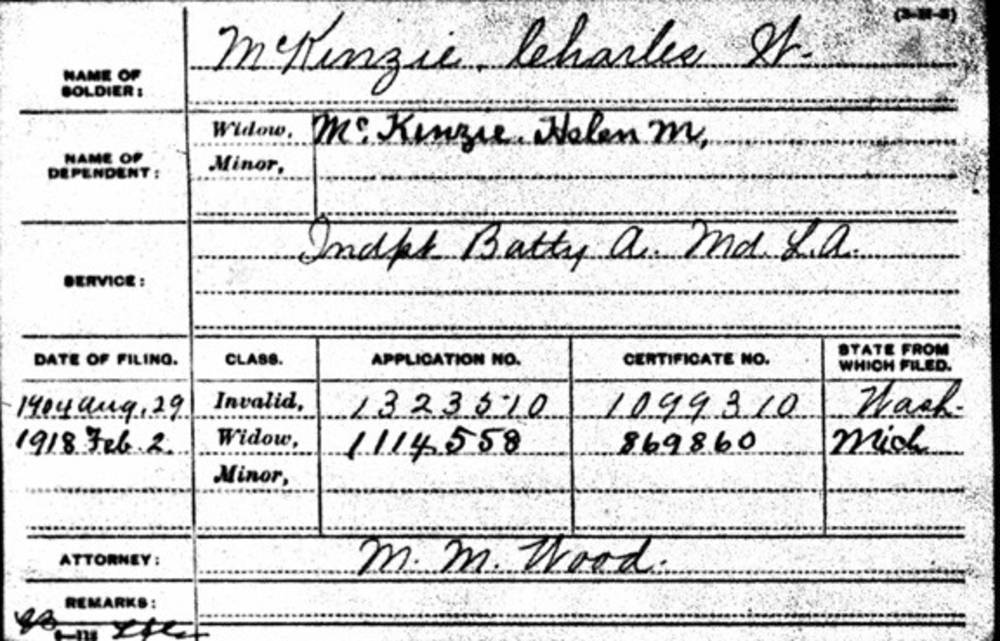 (3-111-2)
NAME OF SOLDIER: McKinzie, Charles W.
NAME OF DEPENDENT: Widow, McKenzie, Helen M,
Minor,
SERVICE: Indpt Batty A. Md. L.A.
DATE OF FILING. CLASS. APPLICATION NO. CERTIFICATE NO. STATE FROM WHICH FILED.
1904 Aug, 29 Invalid, 1323510 1099310 Wash-
1918 Feb. 2. Widow, 1114558 869860 Mich
Minor,
ATTORNEY: M. M. Wood.
REMARKS: